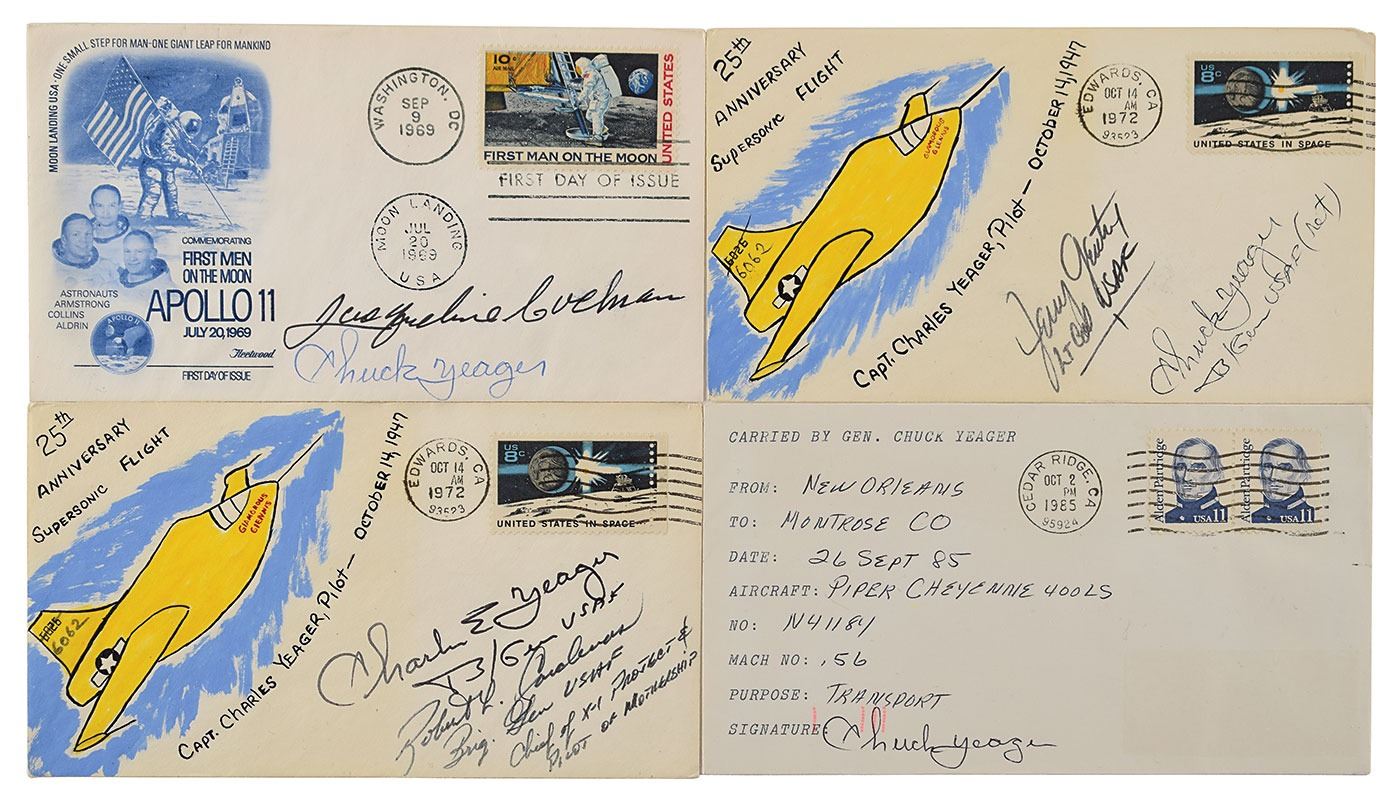 MOON LANDING USA · ONE SMALL STEP FOR MAN-ONE GIANT LEAP FOR MANKIND
COMMEMORATING
FIRST MEN
ON THE MOON
ASTRONAUTS
ARMSTRONG
COLLINS
ALDRIN
APOLLO 11
JULY 20, 1969
APOLLO 11
Fleetwood
FIRST DAY OF ISSUE
WASHINGTON, DC
SEP
9
1969
10c
AIR MAIL
UNITED STATES
FIRST MAN ON THE MOON
FIRST DAY OF ISSUE
MOON LANDING
JUL
20
1969
USA
Jacqueline Cochran
Chuck Yeager
25th
ANNIVERSARY
SUPERSONIC FLIGHT
GLAMOROUS
GLENNIS
6062
CAPT. CHARLES YEAGER, Pilot — OCTOBER 14, 1947
EDWARDS, CA
OCT 14
AM
1972
93523
US
8c
UNITED STATES IN SPACE
Jerry Gentry
Lt Col USAF
Chuck Yeager
B/Gen USAF (ret)
25th
ANNIVERSARY
SUPERSONIC FLIGHT
GLAMOROUS
GLENNIS
6062
CAPT. CHARLES YEAGER, Pilot — OCTOBER 14, 1947
EDWARDS, CA
OCT 14
AM
1972
93523
US
8c
UNITED STATES IN SPACE
Charles E Yeager
B/Gen USAF
Robert L. Cardenas
Brig. Gen USAF
Chief of X-1 Project &
Pilot of Mothership
CARRIED BY GEN. CHUCK YEAGER
FROM: NEW ORLEANS
TO: MONTROSE CO
DATE: 26 SEPT 85
AIRCRAFT: PIPER CHEYENNE 400LS
NO: N41184
MACH NO: .56
PURPOSE: TRANSPORT
SIGNATURE: Chuck Yeager
CEDAR RIDGE, CA
OCT 2
PM
1985
95924
Alden Partridge
USA 11
Alden Partridge
USA 11